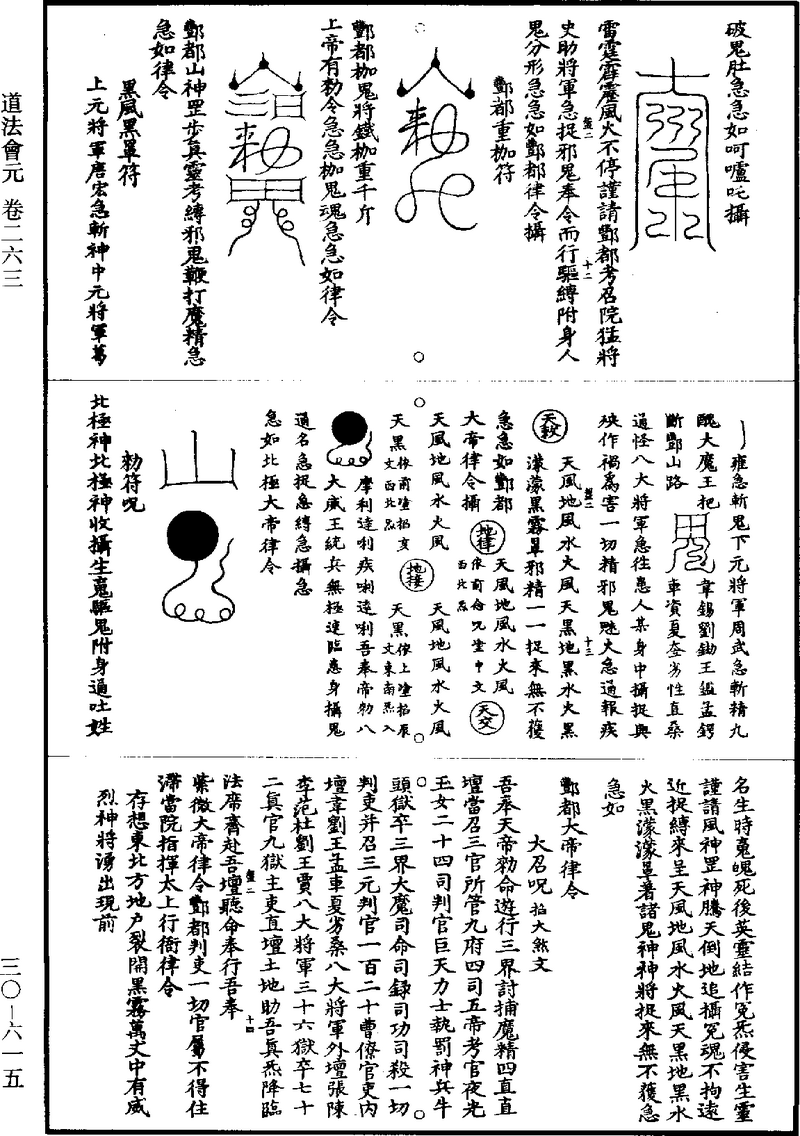 道法會元 卷二六三
三〇－六一五
破鬼肚急急如呵嚧吒攝
雷霆霹靂風火不停謹請酆都考召院猛將
史助將軍急捉邪鬼奉令而行驅縛附身人
鬼分形急急如酆都律令攝
酆都重枷符
酆都枷鬼將鐵枷重千斤
上帝有勑令急急枷鬼魂急急如律令
酆都山神罡步真靈考縛邪鬼鞭打魔精急
急如律令
黑風黑罩符
上元將軍唐宏急斬神中元將軍葛
雍急斬鬼下元將軍周武急斬精九
醜大魔王把 韋錫劉鋤王鑑孟鍔
斷酆山路 車資夏夌劣性直桑
通怪八大將軍急往患人某身中攝捉與
殃作禍為害一切精邪鬼魅火急通報疾
天殺 天風地風水火風天黑地黑水火黑
濛濛黑霧罩邪精一一捉來無不獲
急急如酆都 天風地風水火風
大帝律令攝 地律 依前命咒堂中文
西北炁
天交
天風地風水火風 天風地風水火風
天黑 依前噇掐亥
文西北炁
地接
天黑 依上噇掐辰
文東南炁入
摩利達唎疾唎達唎吾奉帝勑八
大威王統兵無極速臨患身攝鬼
通名急捉急縛急攝急
急如北極大帝律令
勑符呪
北極神北極神收攝生䰟驅鬼附身通吐姓
名生時䰟魄死後英靈結作冤炁侵害生靈
謹請風神罡神騰天倒地追攝冤魂不拘遠
近捉縛來呈天風地風水火風天黑地黑水
火黑濛濛罩著諸鬼神神將捉來無不獲急
急如
酆都大帝律令
大召呪 掐大煞文
吾奉天帝勑命遊行三界討捕魔精四直直
壇當召三官所管九府四司五帝考官夜光
玉女二十四司判官巨天力士執罰神兵牛
頭獄卒三界大魔司命司録司功司殺一切
判吏并召三元判官一百二十曹僚官吏內
壇韋劉王孟車夏劣桑八大將軍外壇張陳
李范杜劉王賈八大將軍三十六獄卒七十
二真官九獄主吏直壇土地助吾真炁降臨
法席齊赴吾壇聽命奉行吾奉
紫微大帝律令酆都判吏一切官屬不得住
滯當院指揮太上行衙律令
存想東北方地戶裂開黑霧萬丈中有威
烈神將湧出現前